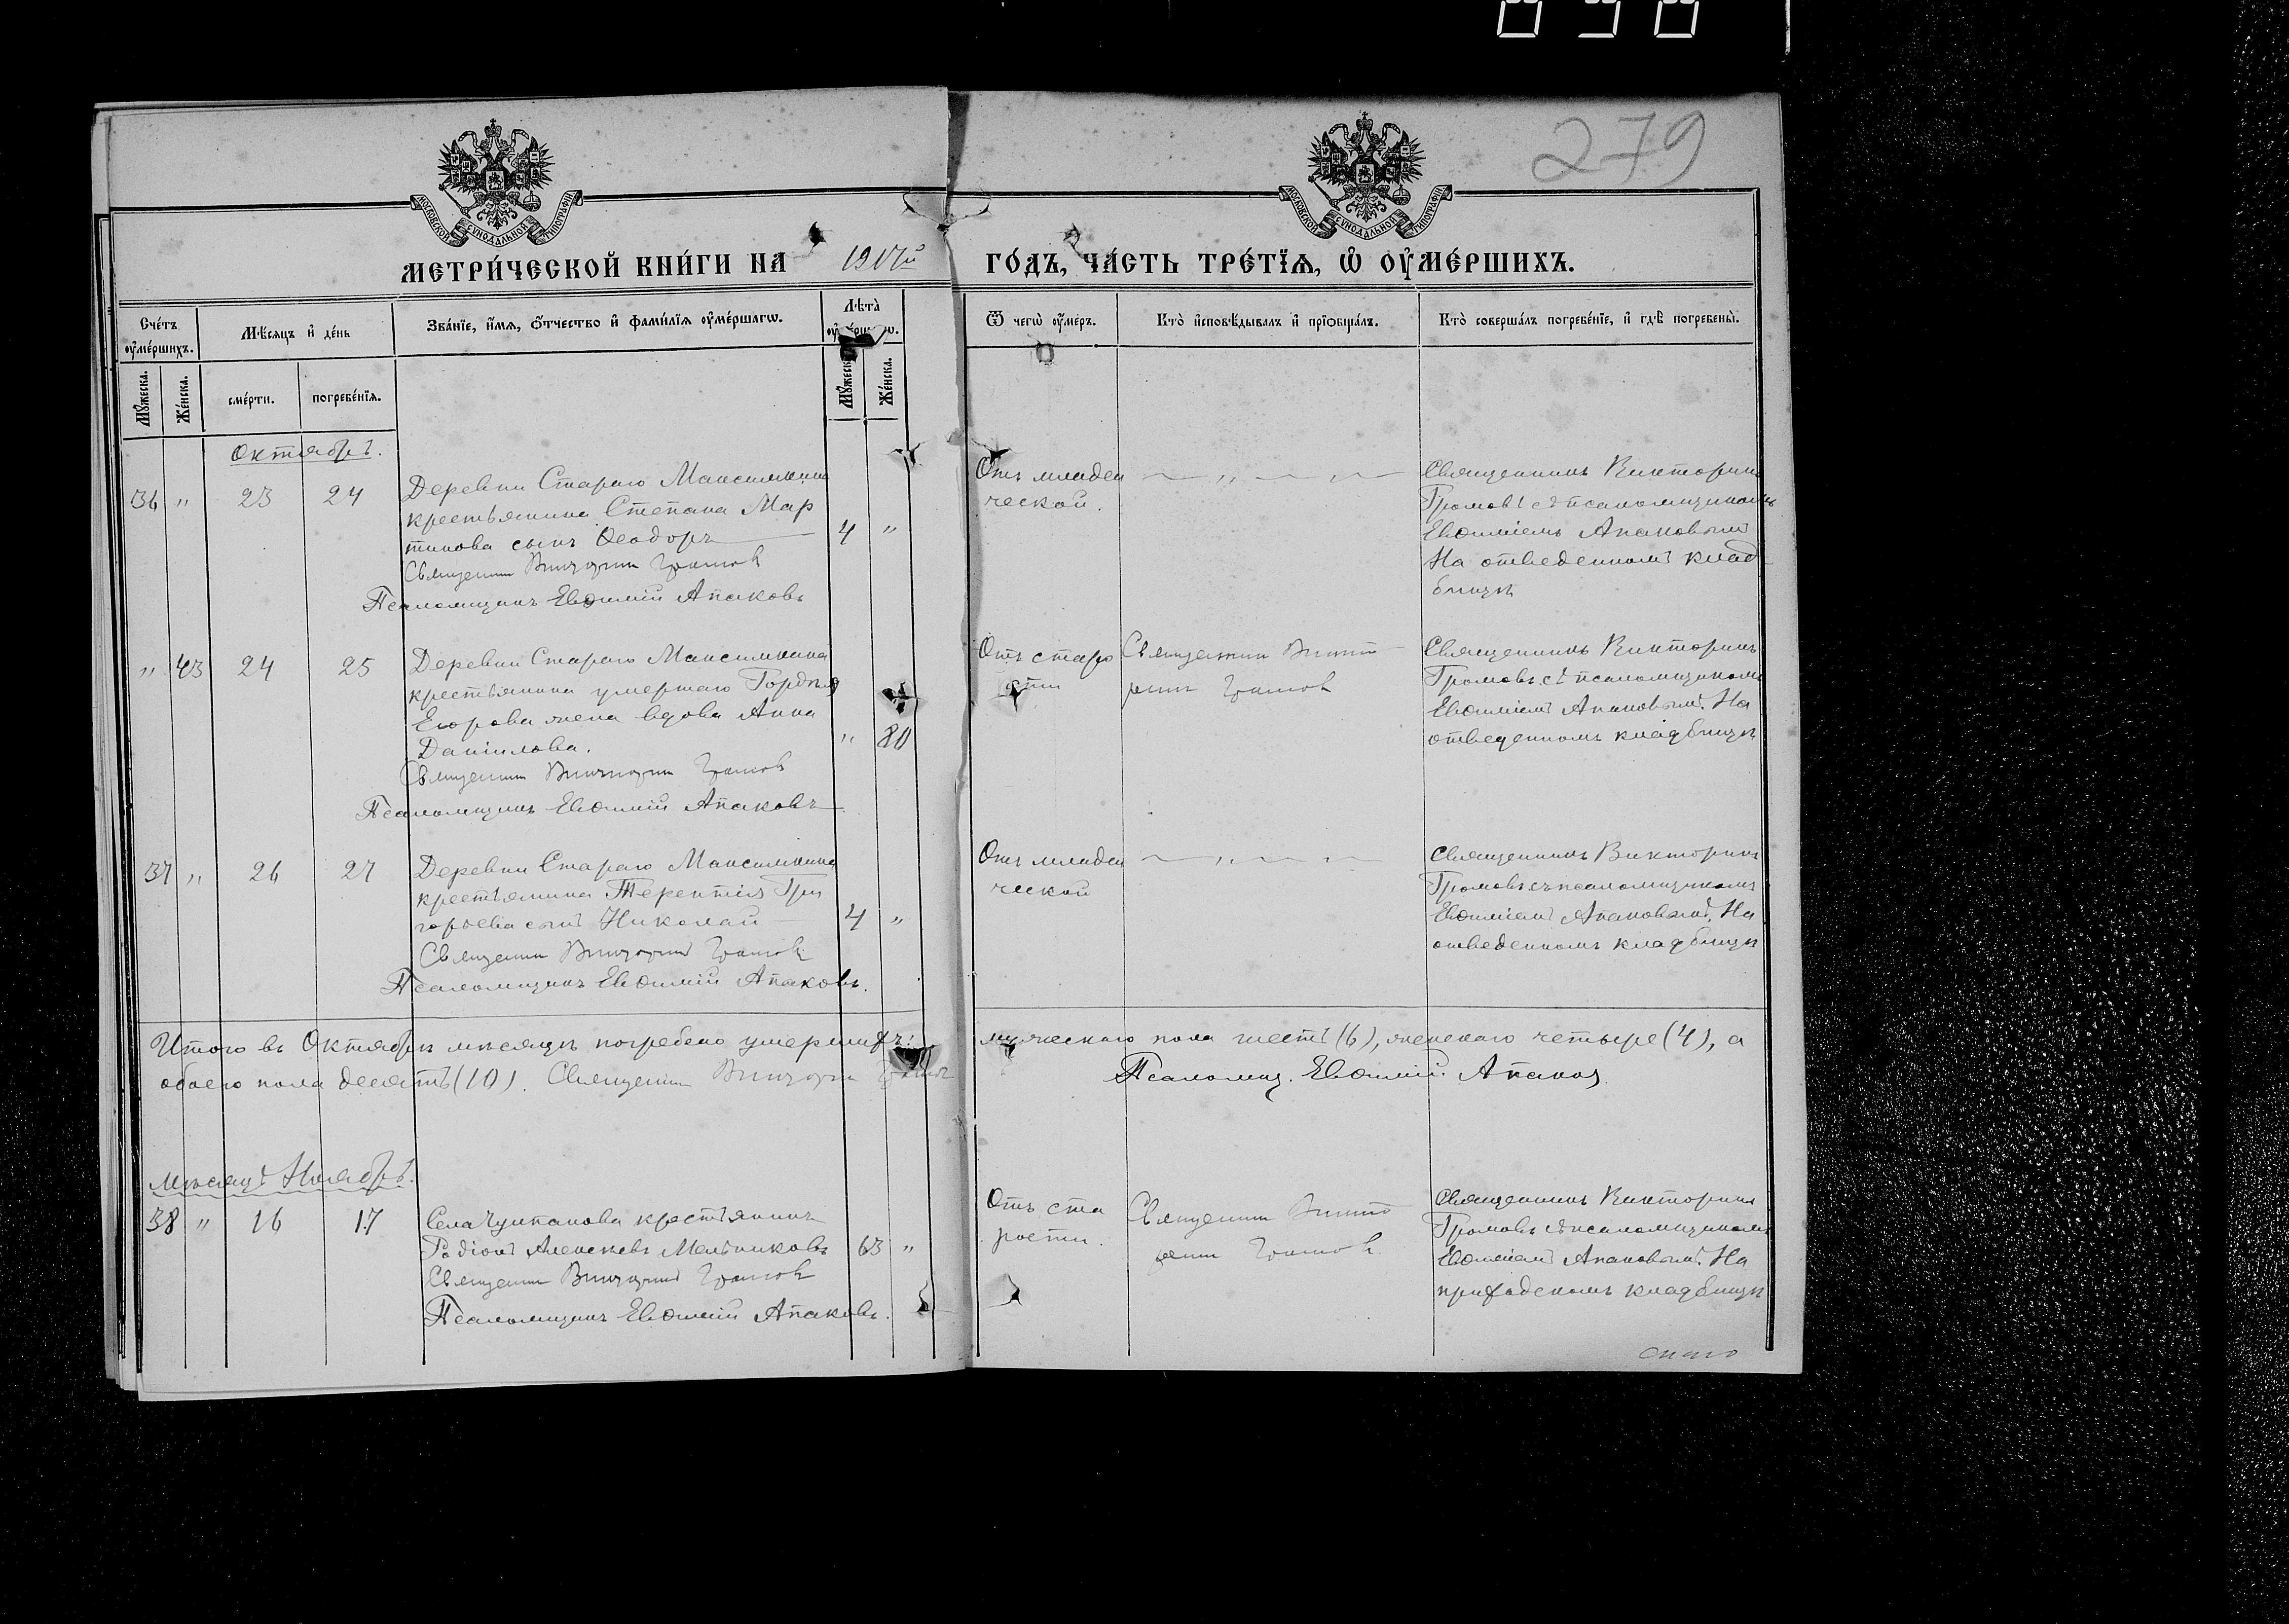 279
МОСКОВСКОЙ СУНОДАЛЬНОЙ ТИПОГРАФІИ
МОСКОВСКОЙ СУНОДАЛЬНОЙ ТИПОГРАФІИ
МЕТРИ́ЧЕСКОЙ КНИ́ГИ НА 1917й ГО́ДЪ, ЧА́СТЬ ТРЕ́ТЇѦ, Ѡ҆ ОУ҆МЕ́РШИХЪ.
Сче́тъ оу҆ме́ршихъ.
Мѣ́сяцъ и҆ де́нь
Зва́нїе, и҆́мѧ, ѻ҆́тчество и҆ фами́лїѧ оу҆ме́ршагѡ.
Лѣта̀
Ѿ чегѡ̀ оу҆́меръ.
Кто̀ и҆сповѣ́дывалъ и҆ прїѡбща́лъ.
Кто̀ соверша́лъ погребе́нїе, и҆ гдѣ̀ погребены̀.
Му́жеска.
Же́нска.
сме́рти.
погребе́нїѧ.
Же́нска.
Октябрь.
36 " 23 24
Деревни Стараго Максимкина
крестьянина Степана Мар
тинова сынъ Ѳеодоръ
4 "
Священник Викторин Громов
Псаломщикъ Евѳимій Апаковъ
Отъ младен
ческой.
Священникъ Викторинъ
Громовъ съ псаломщикомъ
Евѳиміемъ Апаковымъ
На отведенномъ клад
бищѣ
" 43 24 25
Деревни Стараго Максимкина
крестьянина умершаго Гордѣя
Егорова жена вдова Анна
Даниилова.
" 80
Священник Викторин Громов
Псаломщикъ Евѳимій Апаковъ
Отъ старо
сти
Священник Викто
рин Громов
Священникъ Викторинъ
Громовъ съ псаломщикомъ
Евѳиміемъ Апаковымъ. На
отведенномъ кладбищѣ
37 " 26 27
Деревни Стараго Максимкина
крестьянина Терентія Гри
горьева сынъ Николай
4 "
Священник Викторин Громов
Псаломщикъ Евѳимій Апаковъ.
Отъ младен
ческой
Священникъ Викторинъ
Громовъ съ псаломщикомъ
Евѳиміемъ Апаковымъ. На
отведенномъ кладбищѣ
Итого въ Октябрѣ мѣсяцѣ погребено умершихъ: мужескаго пола шесть (6), женскаго четыре (4), а
обоего пола десять (10). Священник Викторин Громов Псаломщ. Евѳимій Апаков
мѣсяцъ Ноябрь.
38 " 16 17
Села Чулпанова крестьянинъ
Родіонъ Алексѣевъ Мельниковъ
63 "
Священник Викторин Громов
Псаломщикъ Евѳимій Апаковъ.
Отъ ста
рости.
Священник Викто
рин Громов.
Священникъ Викторинъ
Громовъ съ псаломщикомъ
Евѳиміемъ Апаковымъ. На
приходскомъ кладбищѣ